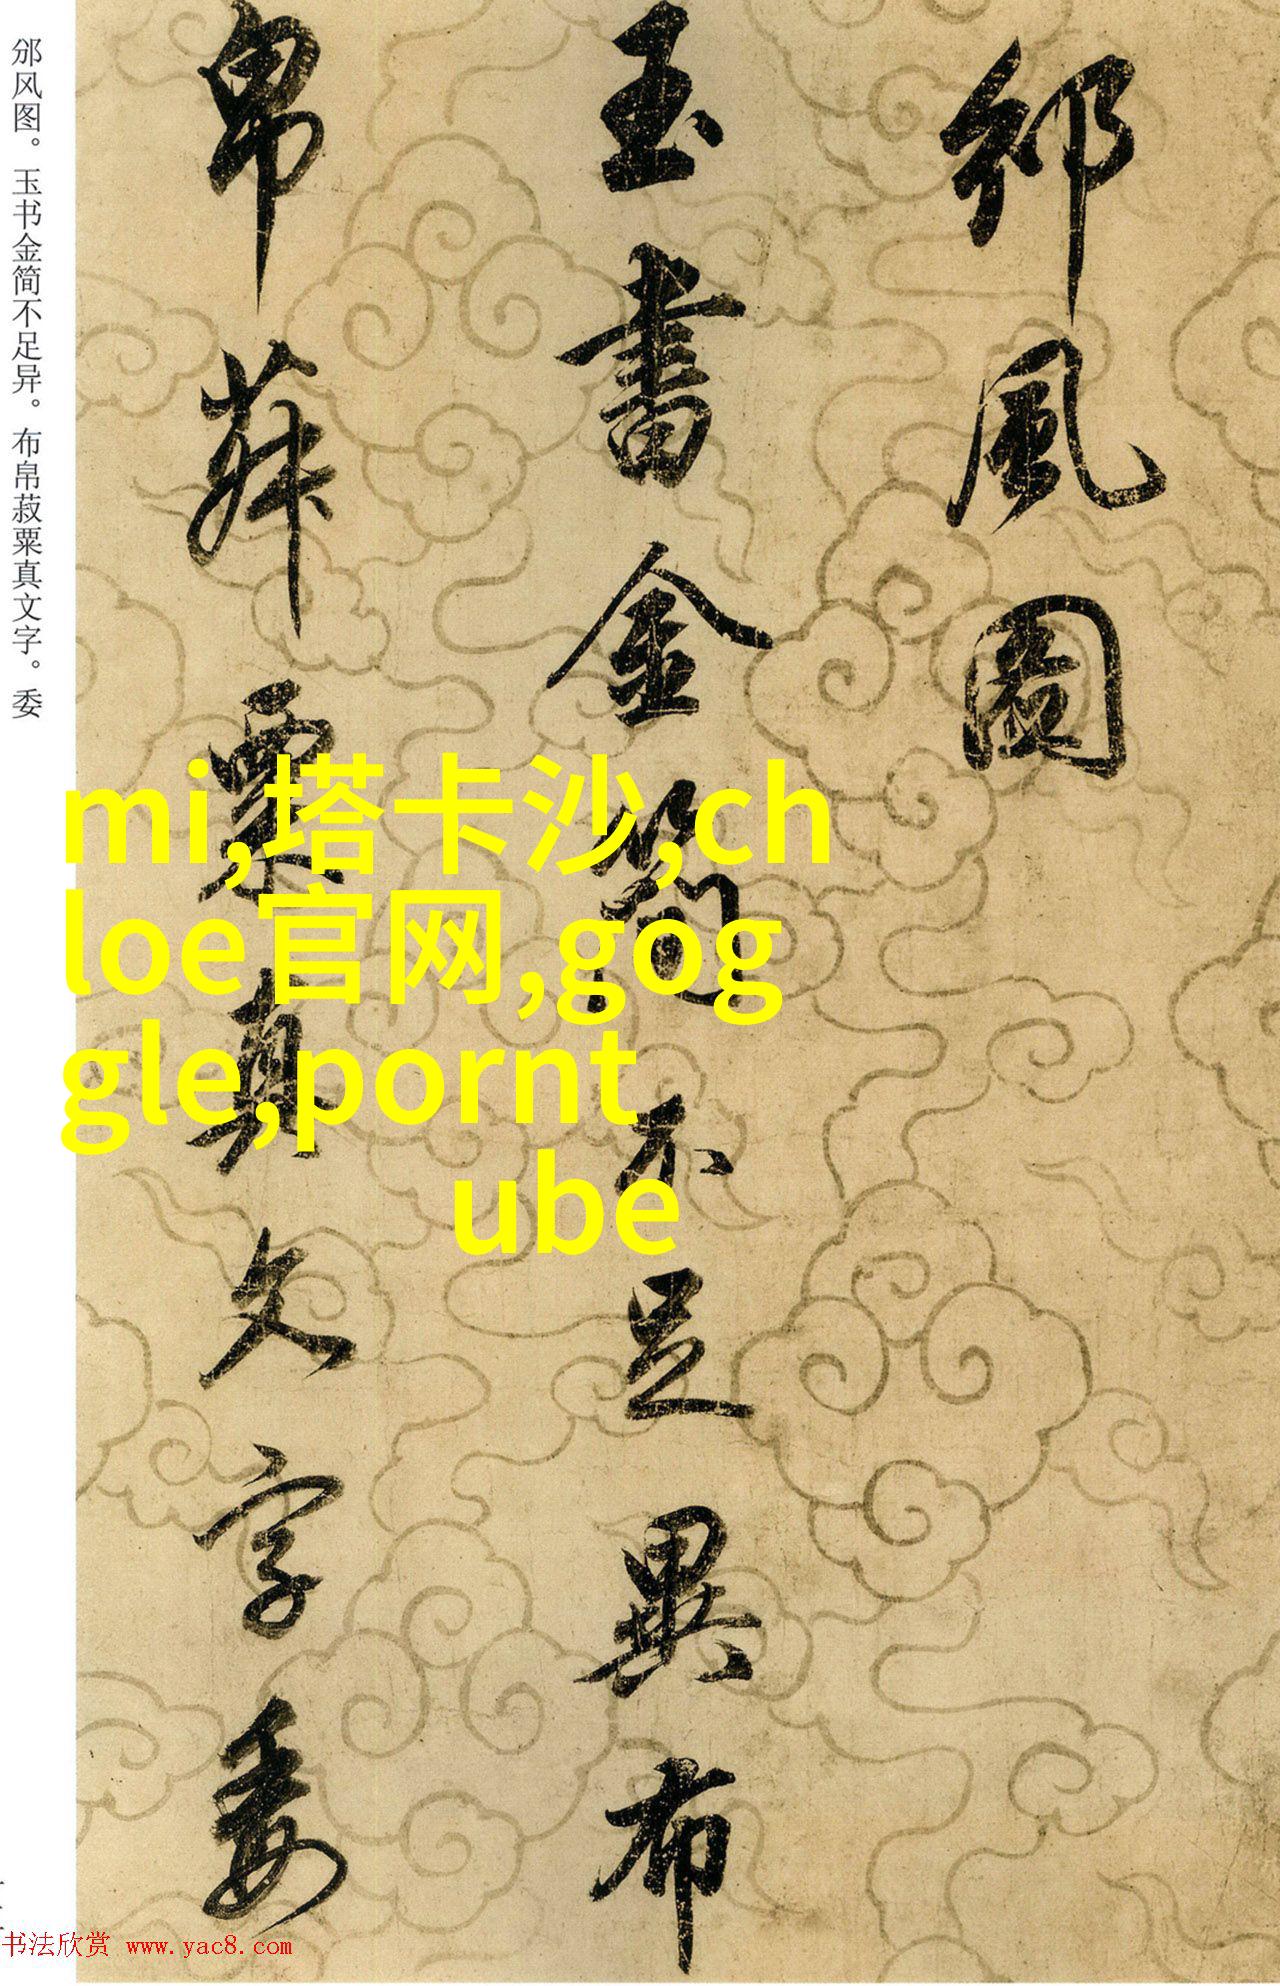 邠風圖
玉書金簡不足異布
帛菽粟真文字委
邠风图。玉书金简不足异。布帛菽粟真文字。委
mi,塔卡沙,ch
loe官网,gog
gle,pornt
ube
书法欣赏 www.yac8.com